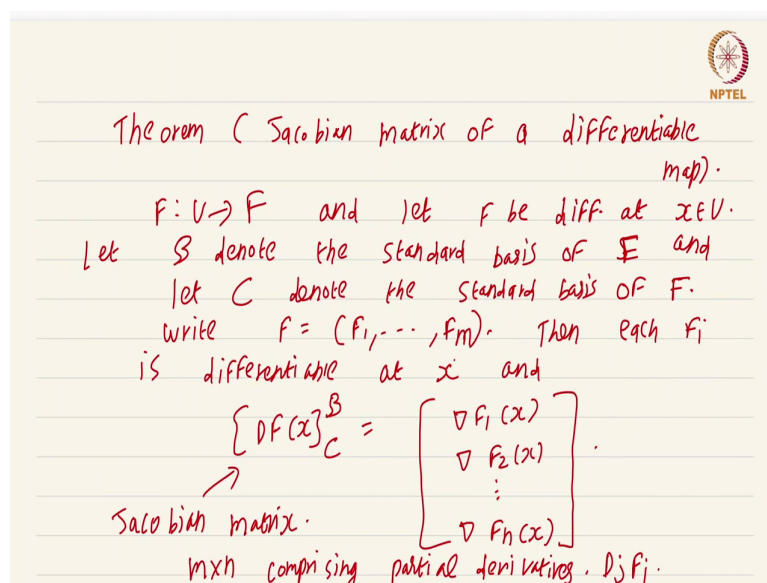 NPTEL
Theorem ( Jacobian matrix of a differentiable
map).
F: U → F and let F be diff. at x ∈ U.
Let B denote the standard basis of E and
let C denote the standard basis of F.
write F = (F₁, - - - , Fm). Then each Fi
is differentiable at x and
[DF(x)]_C^B = [ ∇ F₁ (x)
∇ F₂ (x)
⋮
∇ Fn (x) ] .
Jacobian matrix.
m×n comprising partial derivatives. Dj Fi.